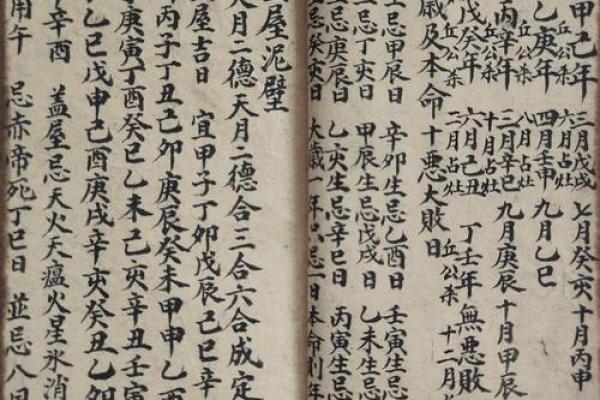 甲己年 三月戊戌 七月癸亥 十月丙申
丘公杀 六月占灶
乙庚年 四月壬申 九月乙巳
丘公杀 八月占灶
丙辛年 三月辛巳 九月庚辰 十月甲辰
丘公杀 十月占灶
戊癸年 六月己丑 丁壬年無惡敗
丘公杀 十二月
歲及本命十惡大敗日
忌甲辰日 辛卯生忌乙酉日 壬寅生忌
忌丁亥日 甲辰生忌戊戌日 乙未生忌
忌庚辰日 乙亥生忌辛巳日 丙寅生忌
忌癸亥日 大歲一年只忌一日本命則年
屋泥壁
天月二德天月二德合三合六合成定
屋吉日 宜甲子丁卯戊辰己巳辛
丙子丁丑己卯庚辰癸未甲申乙
庚寅丁酉癸巳乙未己亥辛丑壬寅
乙巳戊申己酉庚戌辛亥癸丑乙卯
辛酉 盖屋忌天火天瘟火星氷消
用午 忌赤帝死丁巳日 並忌八月